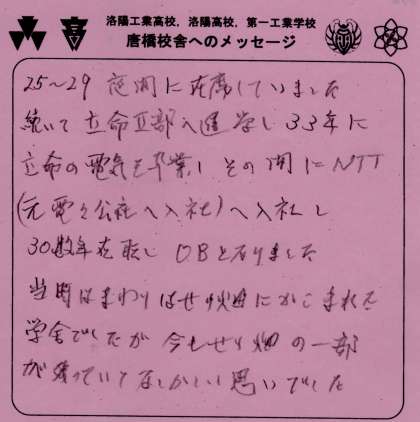 洛陽工業高校，洛陽高校，第一工業学校
唐橋校舎へのメッセージ
25〜29 夜間に在席していました
続いて立命Ⅱ部へ進学し33年に
立命の電気を卒業し その間にNTT
(元電々公社へ入社)へ入社し
30数年在職し OBとなりました
当時はまわりはせり畑にかこまれた
学舎でしたが 今もせり畑の一部
が残っていてなつかしい思いでした